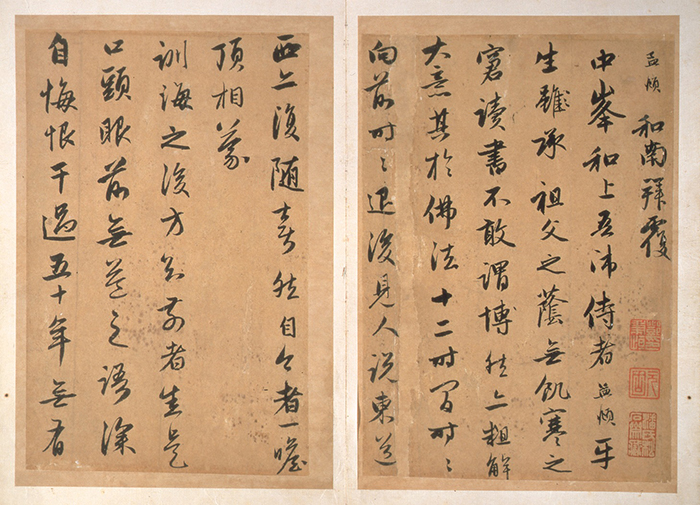 孟頫和南拜覆
中峯和上吾師侍者孟頫平
生雖承祖父之蔭無飢寒之
窘讀書不敢謂博然亦粗解
大意其於佛法十二時間時〻
向前時〻退後見人説東道
西亦復隨喜然自今者一瞻
頂相蒙
訓誨之後方知前者生是
口頭眼前無益之語深
自悔恨干過五十年無有